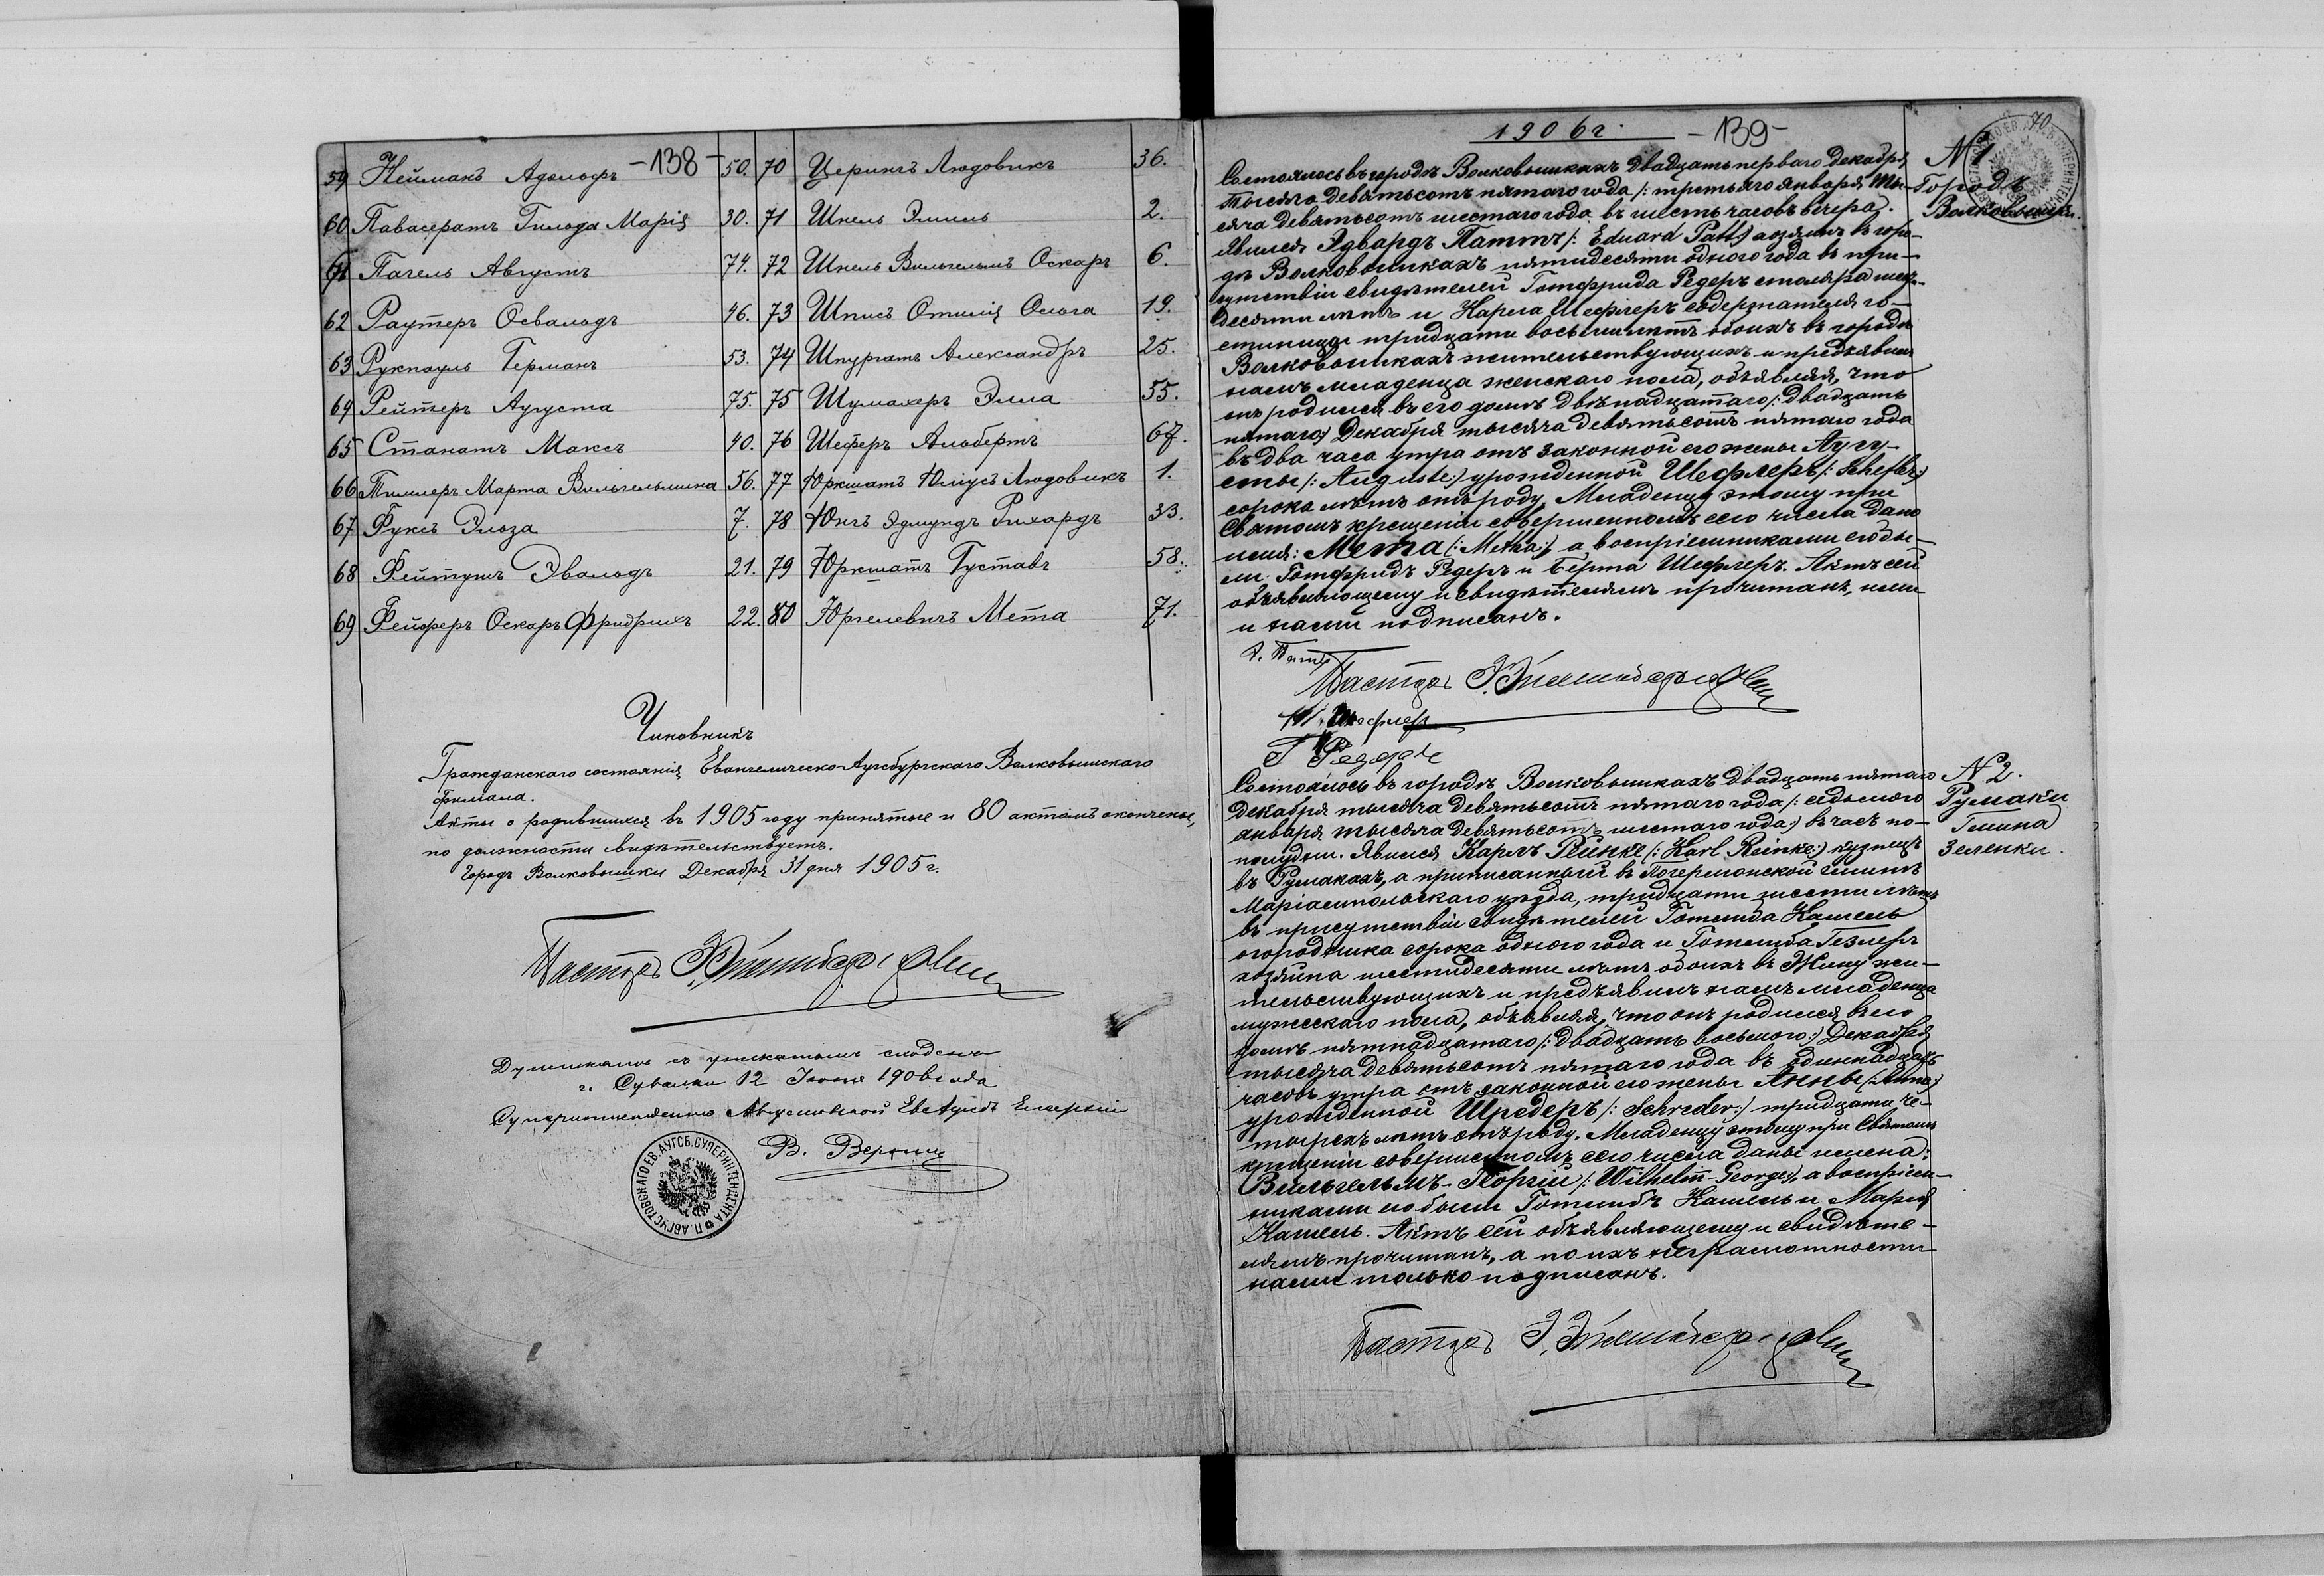 -138-
59 Нейманъ Адольфъ 50. 70 Церингъ Людовикъ 36.
60 Павасератъ Гильда Марія 30. 71 Шнель Эмиль 2.
61 Пагель Августъ 74. 72 Шнель Вильгельмъ Оскаръ 6.
62 Раутеръ Освальдъ 46. 73 Шписъ Отилія Ольга 19.
63 Рукпауль Германъ 53. 74 Шпургатъ Александръ 25.
64 Рейтеръ Аугуста 75. 75 Шумахеръ Элла 55.
65 Станатъ Максъ 40. 76 Шеферъ Альбертъ 67.
66 Тиллеръ Марта Вильгельмина 56. 77 Юркшатъ Юліусъ Людовикъ 1.
67 Фуксъ Эльза 7. 78 Юнгъ Эдмундъ Рихардъ 33.
68 Фейтушъ Эвальдъ 21. 79 Юркшатъ Густавъ 58.
69 Фейферъ Оскаръ Фридрихъ 22. 80 Юргелевичъ Мета 71.
Чиновникъ
Гражданскаго состоянія Евангелическо-Аугсбургскаго Волковышскаго
филіала.
Акты о родившихся въ 1905 году принятые и 80 актомъ оконченые,
по должности свидѣтельствуетъ.
Городъ Волковышки Декабря 31 дня 1905 г.
Пасторъ
Дупликатъ съ уникатомъ сходенъ
г. Сувалки 12 Іюня 1906 года
В.
АВГУСТОВСКАГО ЕВ. АУГСБ. СУПЕРИНТЕНДЕНТА
1906 г. -139-
70
Состоялось въ городѣ Волковышкахъ двадцать перваго декабря
тысяча девятьсотъ пятаго года /: третьяго января ты-
сяча девятьсотъ шестаго года въ шесть часовъ вечера.
Явился Эдвардъ Паттъ /: Eduard Patt:/ хозяинъ въ горо-
дѣ Волковышкахъ пятидесяти одного года въ при-
сутствіи свидѣтелей Готфрида Редеръ столяра шести-
десяти лѣтъ и Карла Шефлеръ содержателя го-
стиницы тридцати восьми лѣтъ обоихъ въ городѣ
Волковышкахъ жительствующихъ и предъявилъ
намъ младенца женскаго пола, объявляя, что
онъ родился въ его домѣ двѣнадцатаго /: двадцать
пятаго:/ Декабря тысяча девятьсотъ пятаго года
въ два часа утра отъ законной его жены Аугу-
сты /: Auguste:/ урожденной Шефлеръ /: Schefler:/
сорока лѣтъ отъ роду. Младенцу этому при
Святомъ крещеніи совершенномъ сего числа дано
имя: Мета /: Metha:/ а воспріемниками его бы-
ли Готфридъ Редеръ и Берта Шефлеръ. Актъ сей
объявляющему и свидѣтелямъ прочитанъ, ими
и нами подписанъ.
Пасторъ
Шефлеръ
Г Редеръ
№ 1
Городъ
Волковышки.
Состоялось въ городѣ Волковышкахъ двадцать пятаго
Декабря тысяча девятьсотъ пятаго года /: седьмого
января тысяча девятьсотъ шестаго года:/ въ часъ по-
полудни. Явился Карлъ Рейнке /: Karl Reinke:/ кузнецъ
въ Румакахъ, а приписанный въ Погермонской гминѣ
Маріампольскаго уѣзда, тридцати шести лѣтъ
въ присутствіи свидѣтелей Готлиба Кашель
огородника сорока одного года и Готлиба Гезлеръ
хозяина шестидесяти лѣтъ обоихъ въ Жину жи-
тельствующихъ и предъявилъ намъ младенца
мужескаго пола, объявляя, что онъ родился въ его
домѣ пятнадцатаго /: двадцать восьмого:/ Декабря
тысяча девятьсотъ пятаго года въ одиннадцать
часовъ утра отъ законной его жены Анны /: Anna:/
урожденной Шредеръ /: Schreder:/ тридцати че-
тырехъ лѣтъ отъ роду. Младенцу этому при Святомъ
крещеніи совершенномъ сего числа даны имена:
Вильгельмъ-Георгій /: Wilhelm-Georg:/, а воспріем-
никами его были Готлибъ Кашель и Марія
Кашель. Актъ сей объявляющему и свидѣте-
лямъ прочитанъ, а по ихъ неграмотности
нами только подписанъ.
Пасторъ
№ 2.
Румаки
Гмина
Зеленки.